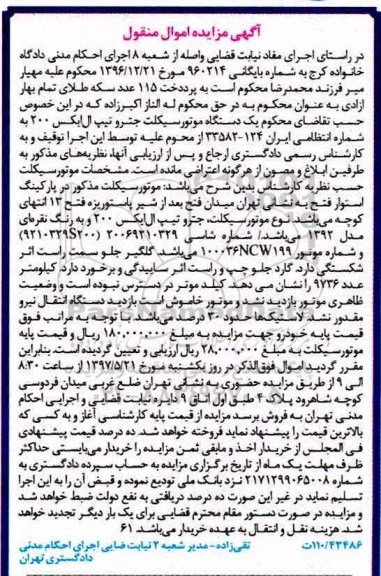 آگهی مزایده اموال منقول
در راستای اجرای مفاد نیابت قضایی واصله از شعبه ۸ اجرای احکام مدنی دادگاه
خانواده کرج به شماره بایگانی ۹۶۰۲۱۴ مورخ ۱۳۹۶/۱۲/۲۱ محکوم علیه مهیار
میر فرزند محمدرضا محکوم است به پرددخت ۱۱۵ عدد سکه طلای تمام بهار
ازادی به عنوان محکوم به در حق محکوم له الناز اکبرزاده که در این خصوص
حسب تقاضای محکوم یک دستگاه موتورسیکلت جترو تیپ ال‌ایکس ۲۰۰ به
شماره انتظامی ایران ۱۲۴-۳۳۵۸۲ از محوم علیه توسط این اجرا توقیف و به
کارشناس رسمی دادگستری ارجاع و پس از ارزیابی آنها، نظریه‌های مذکور به
طرفین ابلاغ و مصون از هرگونه اعتراضی مانده است. مشخصات موتورسیکلت
حسب نظریه کارشناس بدین شرح می‌باشد: موتورسیکلت مذکور در پارکینگ
استوار فتح به نشانی تهران میدان فتح بعد از شیر پاستوریزه فتح ۱۳ انتهای
کوچه می‌باشد. نوع موتورسیکلت، جترو تیپ ال‌ایکس ۲۰۰ و به رنگ نقره‌ای
مدل ۱۳۹۲ می‌باشد/ شماره شاسی ۲۰۰۶۹۲۱۰۳۲۹ (۹۲۱۰۳۲۹S۲۰۰)
و شماره موتور ۱۰۰۰۳۶NCW۱۹۹ می‌باشد. گلگیر جلو سمت راست اثر
شکستگی دارد. گارد جلو چپ و راست اثر ساییدگی و برخورد دارد. کیلومتر
عدد ۹۷۳۶ را نشان می دهد. کیلد موتر در دسترس نبوده است و وضعیت
ظاهری موتور بازدید نشد و موتور خاموش است بازدید دستگاه انتقال نیرو
مقدور نشد. لاستیک‌ها حدود ۳۰ درصد می‌باشد. با توجه به مراتب فوق
قیمت پایه خودرو جهت مزایده به مبلغ ۱۸۰,۰۰۰,۰۰۰ ریال و قیمت پایه
موتورسیکلت به مبلغ ۲۸,۰۰۰,۰۰۰ ریال ارزیابی و تعیین گردیده است. بنابراین
مقرر گردید اموال فوق‌الذکر در روز یکشنبه مورخ ۱۳۹۷/۵/۲۱ از ساعت ۸:۳۰
الی ۹ از طریق مزایده حضوری به نشانی تهران ضلع غربی میدان فردوسی
کوچه شاهرود پلاک ۴ طبق اول اتاق ۹ دایره نیابت قضایی و اجرایی احکام
مدنی تهران به فروش برسد مزایده از قیمت پایه کارشناسی آغاز و به کسی که
بالاترین قیمت را پیشنهاد نماید فروخته خواهد شد. ده درصد قیمت پیشنهادی
فی المجلس از خریدار اخذ و مابقی ثمن مزایده را خریدار می‌بایستی حداکثر
ظرف مهلت یک ماه از تاریخ برگزاری مزایده به حساب سپرده دادگستری به
شماره ۲۱۷۱۲۹۹۰۶۵۰۰۸ نزد بانک ملی تودیع نموده و قبض آن را به این اجرا
تسلیم نماید در غیر این صورت ده درصد دریافتی به نفع دولت ضبط خواهد شد
و مزایده در صورت دستور مقام محترم قضایی برای یک بار دیگر تجدید خواهد
شد. هزینه نقل و انتقال به عهده خریدار می‌باشد. ۶۱
۱۱۰/۴۳۴۸۶ت تقی‌زاده - مدیر شعبه ۲ نیابت ضایی اجرای احکام مدنی
دادگستری تهران